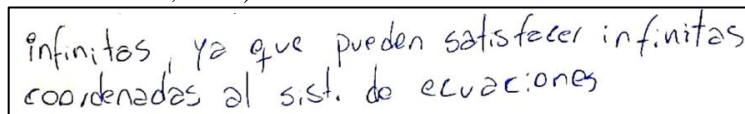 infinitas, ya que pueden satisfacer infinitas
coordenadas al sist. de ecuaciones